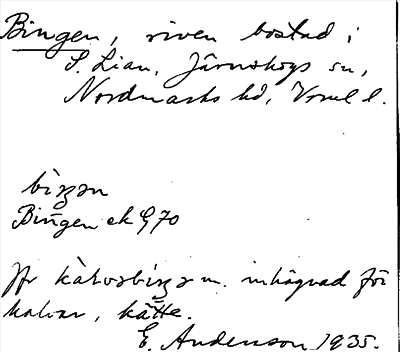 Bingen, riven bostad i
S. Lian, Järnskogs sn,
Nordmarks hd, Vrml l.
biŋŋən
Bingen ek G 70
Jfr kàlvsbiŋŋ m. inhägnad för
kalvar, kätte.
E. Andersson 1935.